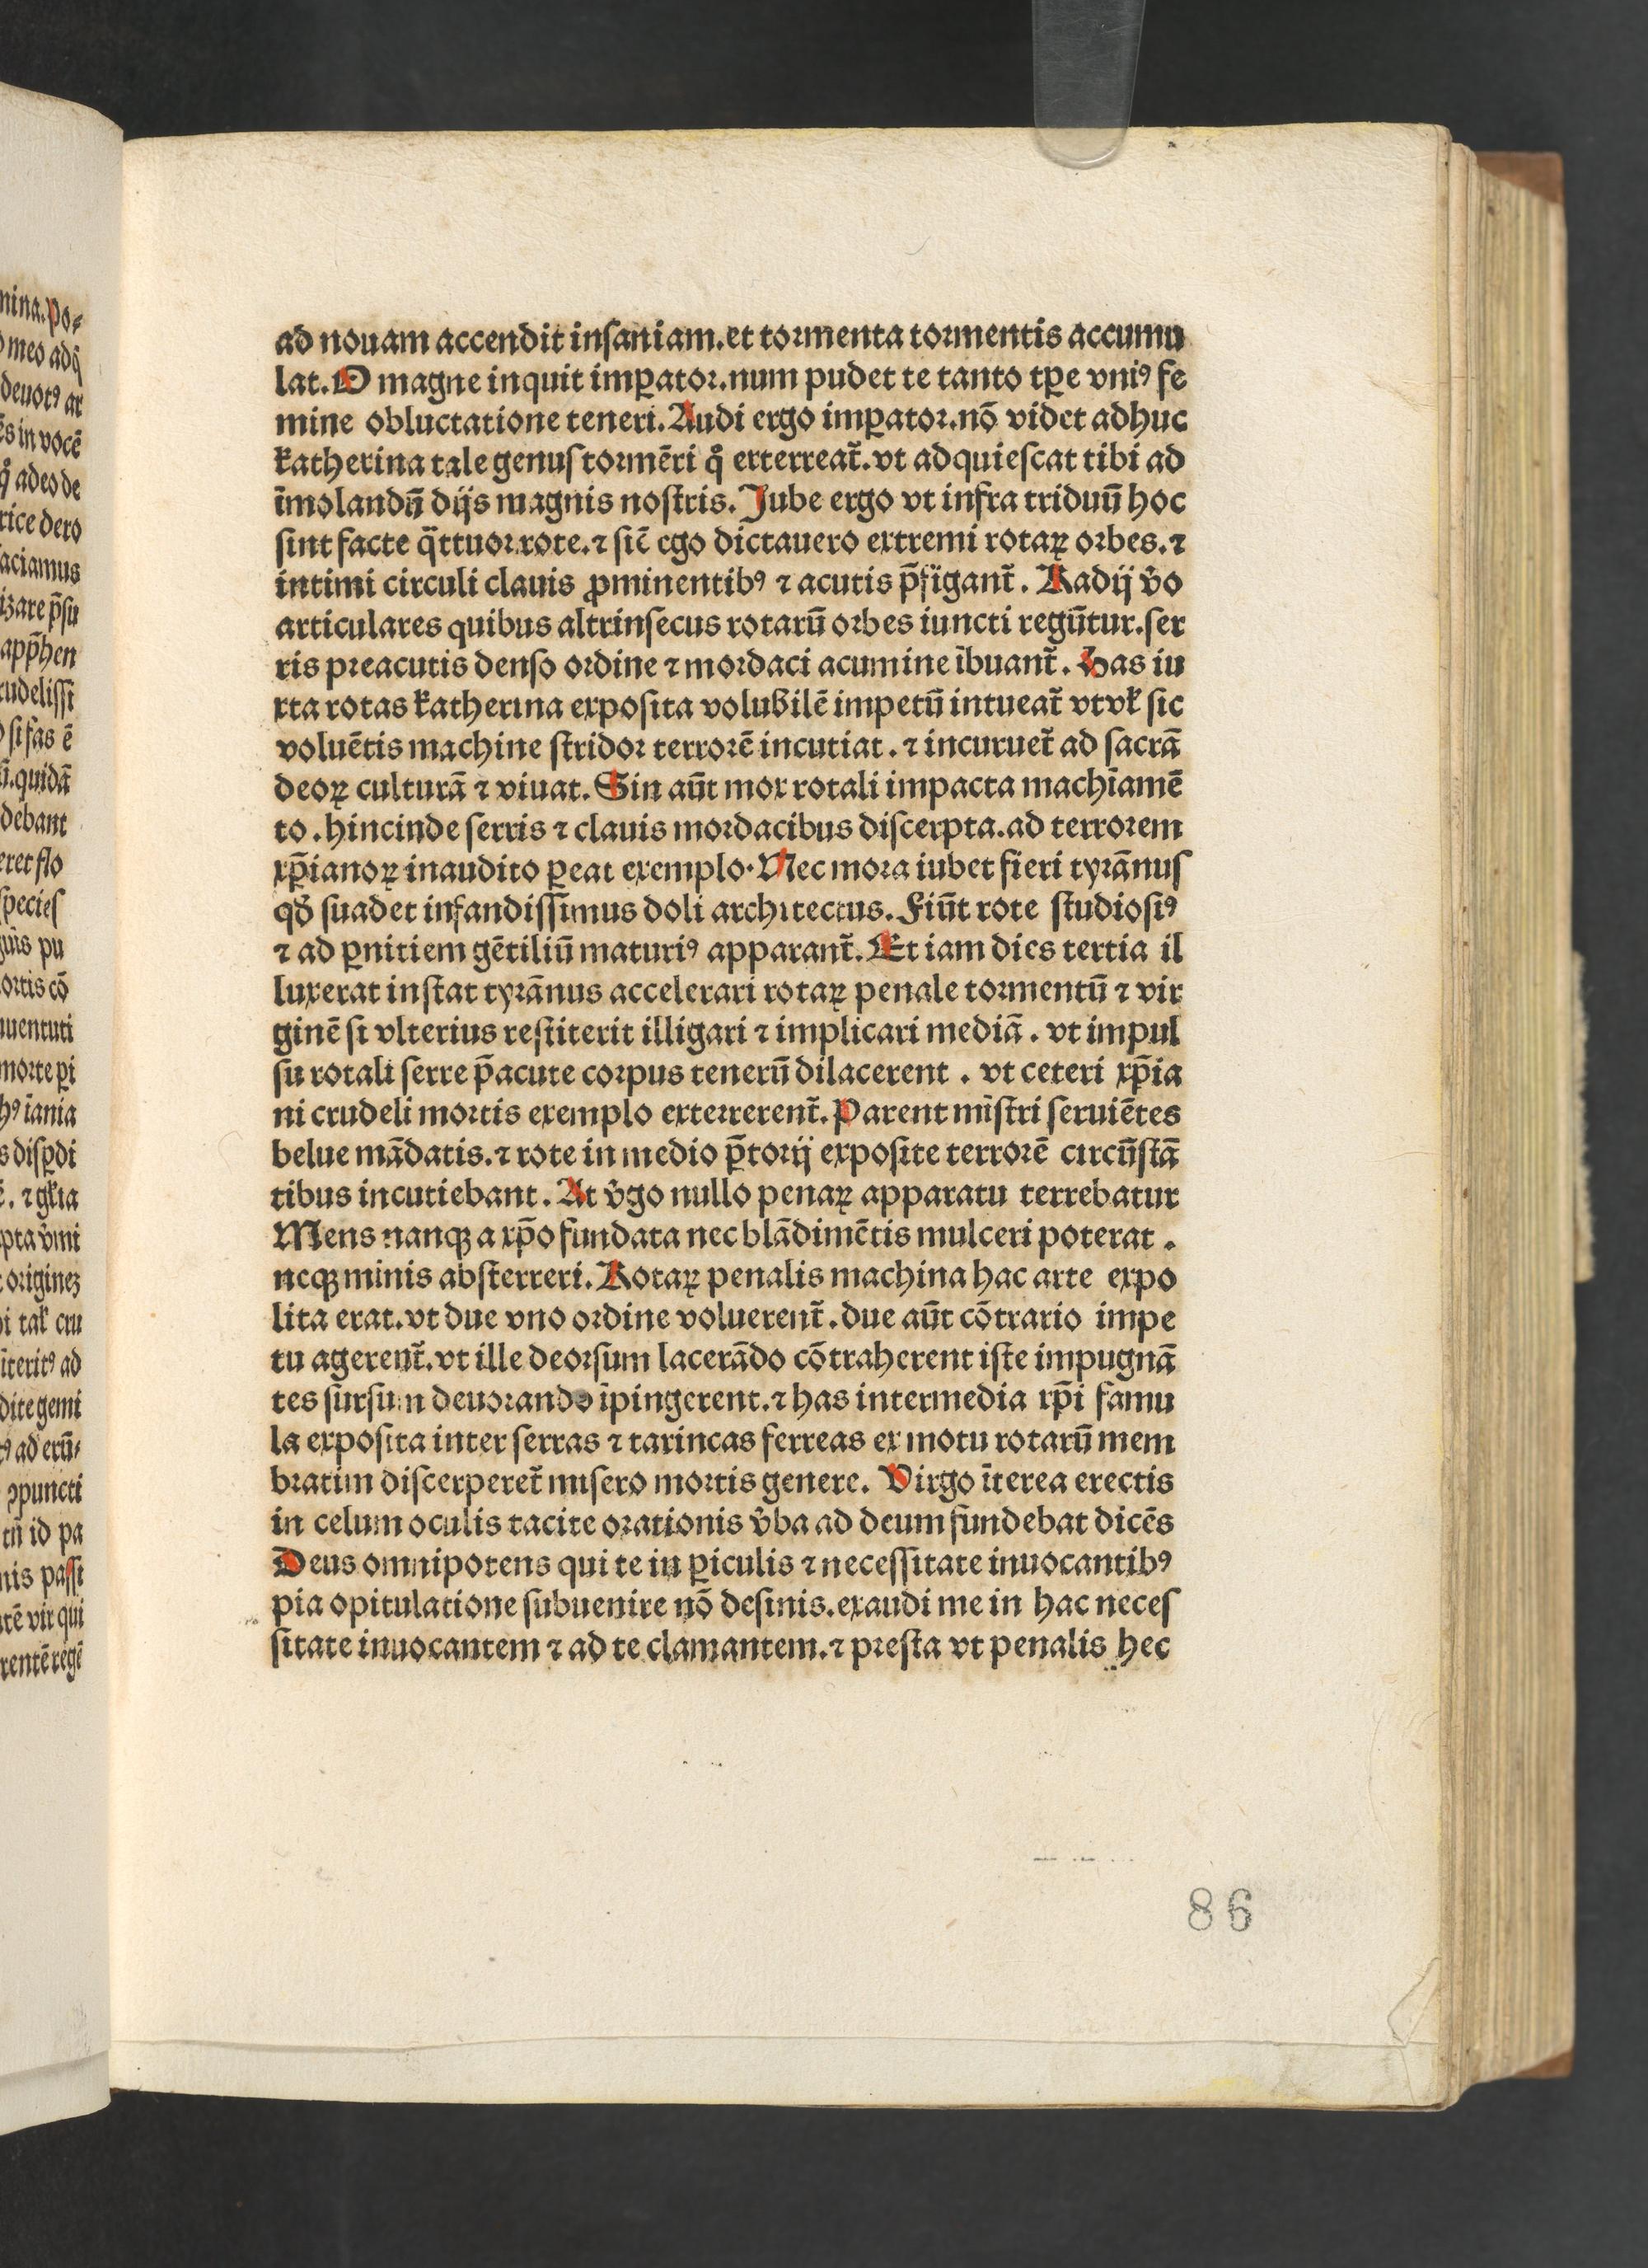 ad nouam accendit inſaniam.et tormenta tormentis accumu
lat.O magne inquit imꝑator.num pudet te tanto tꝑe vniꝰ fe
mine obluctatione teneri.Audi ergo imꝑator.nō videt adhuc
katherina tale genuſ tormēti qͦ exterreat̄.vt adquieſcat tibi ad
īmolandū dijs magnis noſtris. Jube ergo vt infra triduū hoc
ſint facte q̈ttuor rote.⁊ ſic̄ ego dictauero extremi rotaꝝ orbes.⁊
intimi circuli clauis ꝓminentibꝰ ⁊ acutis p̄figant̄. Radij v̄o
articulares quibus altrinſecus rotarū orbes iuncti regūtur.ſer
ris preacutis denſo ordine ⁊ mordaci acumine ībuant̄. Has iu
xta rotas katherina expoſita volubilē impetū intueat̄ vtvꝉ ſic
voluētis machine ſtridor terrorē incutiat.⁊ incuruet̄ ad ſacrā
deoꝝ culturā ⁊ viuat. Sin aūt mox rotali impacta machīamē
to.hincinde ſerris ⁊ clauis mordacibus diſcerpta.ad terrorem
xp̄ianoꝝ inaudito ꝑeat exemplo. Nec mora iubet fieri tyrānuſ
qđ ſuadet infandiſſimus doli architectus. Fiūt rote ſtudioſiꝰ
⁊ ad ꝑnitiem gētiliū maturiꝰ apparant̄. Et iam dies tertia il
luxerat inſtat tyrānus accelerari rotaꝝ penale tormentū ⁊ vir
ginē ſi vlterius reſtiterit illigari ⁊ implicari mediā.vt impul
ſu rotali ſerre p̄acute corpus tenerū dilacerent.vt ceteri xp̄ia
ni crudeli mortis exemplo exterrerent̄. Parent mīſtri ſeruiētes
belue mādatis.⁊ rote in medio p̄torij expoſite terrorē circūſtā
tibus incutiebant. At v̄go nullo penaꝝ apparatu terrebatur
Mens nanqꝫ a xp̄o fundata nec blādimētis mulceri poterat.
neqꝫ minis abſterreri. Rotaꝝ penalis machina hac arte expo
lita erat.vt due vno ordine voluerent̄.due aūt cōtrario impe
tu agerent̄.vt ille deorſum lacerādo cōtraherent iſte impugnā
tes ſurſum deuorando īpingerent.⁊ has intermedia xp̄i famu
la expoſita inter ſerras ⁊ tarincas ferreas ex motu rotarū mem
bratim diſcerperet̄ miſero mortis genere. Virgo īterea erectis
in celum oculis tacite orationis v̄ba ad deum fundebat dicēs
Deus omnipotens qui te in ꝑiculis ⁊ neceſſitate inuocantibꝰ
pia opitulatione ſubuenire nō deſinis.exaudi me in hac neceſ
ſitate inuocantem ⁊ ad te clamantem.⁊ preſta vt penalis hec
86